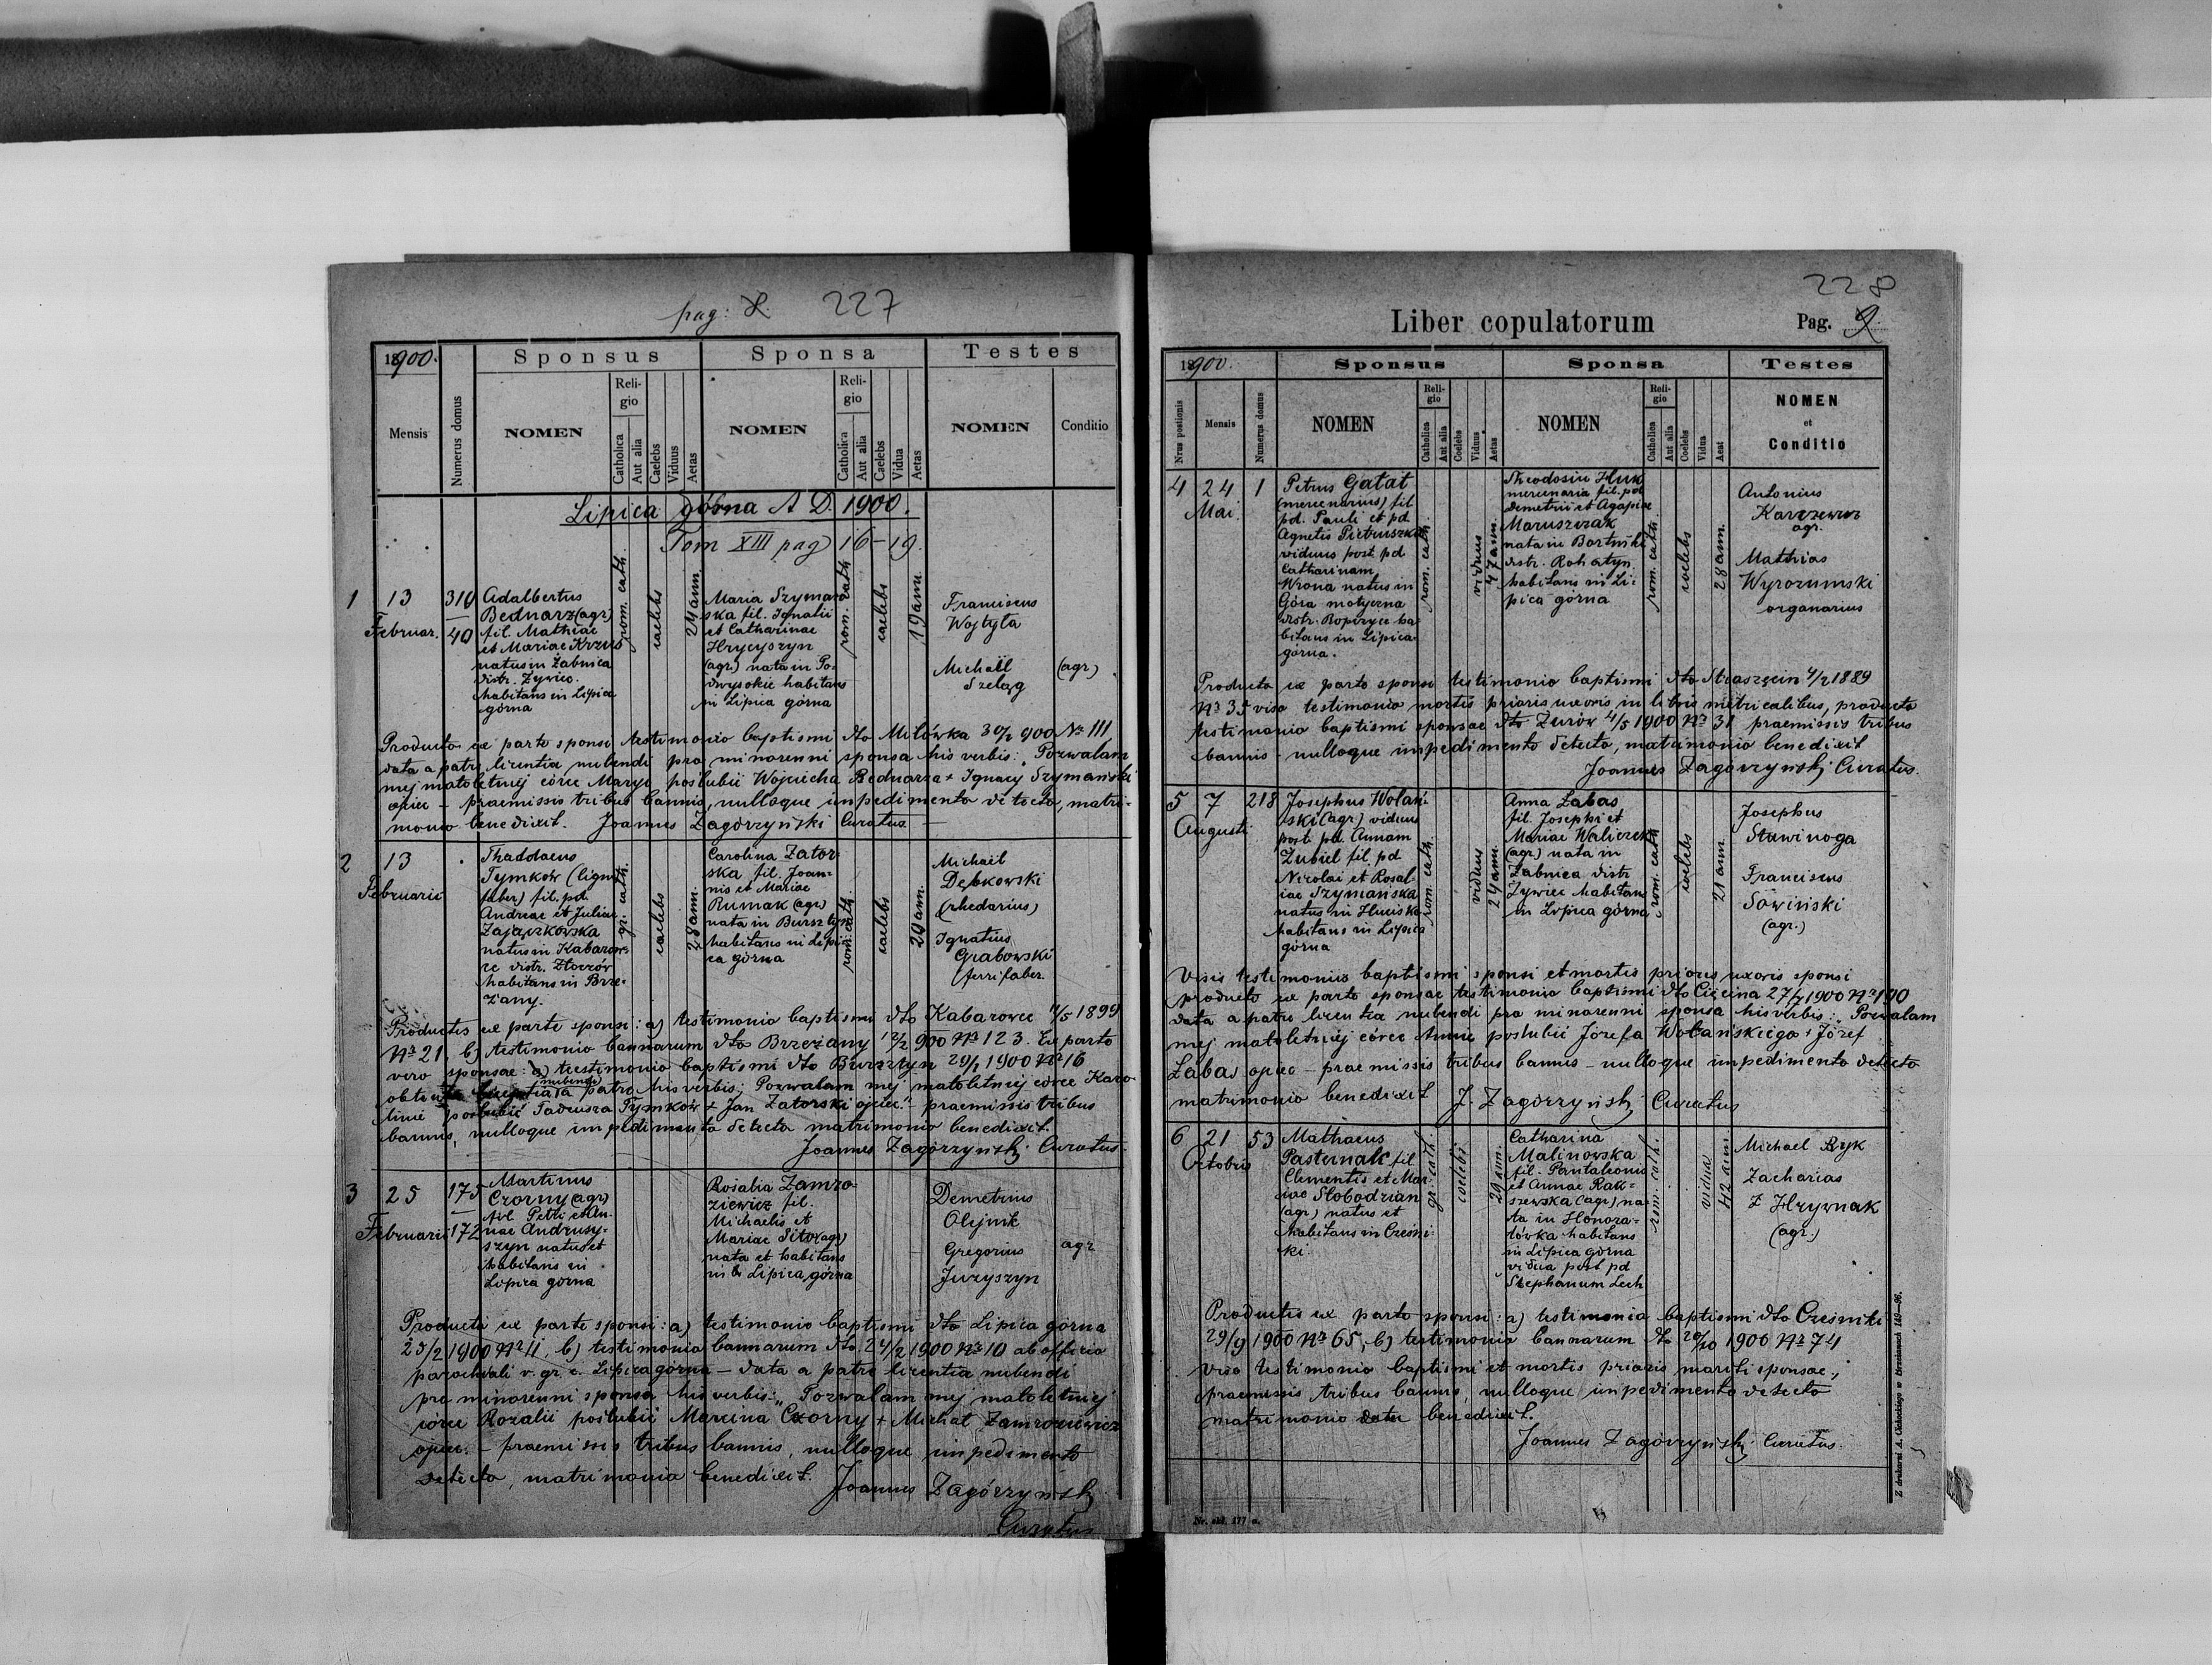 pag: 227
1900.
Sponsus Sponsa Testes
Mensis
Numerus domus
NOMEN
Religio
Catholica
Aut alia
Caelebs
Viduus
Aetas
NOMEN
Religio
Catholica
Aut alia
Caelebs
Vidua
Aetas
NOMEN
Conditio
Lipica górna A D. 1900.
Tom XIII pag 16-19.
1
13
Februar.
310
40
Adalbertus
Bednarz (agr)
fil. Mathiae
et Mariae Krzus
natus in Żabnica
distr. Żywiec.
habitans in Lipica
górna
rom. cath.
caelebs
24 ann.
Maria Szyman
ska fil. Ignatii
et Catharinae
Hrycyszyn
(agr.) nata in Po-
dwysokie habitans
in Lipica górna
rom. cath
caelebs
19 ann.
Franciscus
Wojtyła
Michaël
Szeląg
(agr)
Producto ex parte sponsi testimonio baptismi dto Milówka 900 No 111,
data a patre licentia nubendi pro minorenni sponsa his verbis: "Pozwalam
mej małoletniej córce Maryi poślubić Wojciecha Bednarza + Ignacy Szymański
ojciec - praemissis tribus bannis, nulloque impedimento detecto, matri-
monio benedixit. Joannes Zagórzyński Curatus
2
13
Februarii
Thaddaeus
Tymków (ligni
faber) fil. pd.
Andreae et Juliae
Zajączkowska
natus in Kabarow-
ce distr. Złoczów
habitans in Brze-
żany.
gr. cath.
caelebs
28 ann.
Carolina Zator-
ska fil. Joan-
nis et Mariae
Rumak (agr)
nata in Bursztyn
habitans in Lipi-
ca górna
rom. cath.
caelebs
20 ann.
Michaël
Dębkowski
(rhedarius)
Ignatius
Grabowski
ferrifaber.
Productis ex parte sponsi: a) testimonio baptismi dto Kabarowce 1899
No 21 b) testimonio bannorum dto Brzeżany 12/2 900 No 123. Ex parte
vero sponsae: a) testimonio baptismi dto Bursztyn 29/1 1900 No 16
obtenta licentia nubendi a patre his verbis: "Pozwalam mej małoletniej córce Karo
linie poślubić Tadeusza Tymków + Jan Zatorski ojciec." praemissis tribus
bannis, nulloque impedimento detecto matrimonio benedixit.
Joannes Zagórzyński Curatus.
3
25
Februarii
175
172
Martinus
Czorny (agr)
fil Petri et An-
nae Andrusy-
szyn natus et
habitans in
Lipica górna
Rosalia Zamro-
ziewicz fil.
Michaelis et
Mariae Sito (agr)
nata et habitans
in Lipica górna
Demetrius
Olejnik
Gregorius
Juzyszyn
agr
Producto ex parte sponsi: a) testimonio baptismi dto Lipica górna
25/2 1900 No 11 b) testimonio bannorum dto 24/2 1900 No 10 ab officio
parochiali r. gr. c. Lipica górna - data a patre licentia nubendi
pro minorenni sponsa his verbis: "Pozwalam mej małoletniej
córce Rozalii poślubić Marcina Czorny + Michał Zamroziewicz
ojciec. - praemissis tribus bannis, nulloque impedimento
detecto, matrimonio benedixit. Joannes Zagórzyński
Curatus
228
Liber copulatorum Pag.
1900.
Sponsus Sponsa Testes
Nrus positionis
Mensis
Numerus domus
NOMEN
Religio
Catholica
Aut alia
Coelebs
Viduus
Aetas
NOMEN
Religio
Catholica
Aut alia
Coelebs
Vidua
Aetat
NOMEN
et
Conditio
4
24
Mai.
1
Petrus Gałat
(mercenarius) fil
pd. Pauli et pd
Agnetis Pietruszka
viduus post pd
Catharinam
Wrona natus in
Góra motyczna
distr. Ropczyce ha-
bitans in Lipica
górna.
rom. cath.
viduus
47 ann.
Theodosia Huk
mercenaria fil. pd
Demetrii et Agapiae
Maruszczak
nata in Bortniki
distr. Rohatyn
habitans in Li-
pica górna
rom. cath.
coelebs
28 ann.
Antonius
Karczewicz
agr.
Mathias
Wyrozumski
organarius
Producto ex parte sponsi testimonio baptismi dto Straszęcin 1889
No 35 viso testimonio mortis prioris uxoris in libris metricalibus, producto
testimonio baptismi sponsae dto Żurów 4/5 1900 No 31 praemissis tribus
bannis - nulloque impedimento detecto, matrimonio benedixit
Joannes Zagórzyński Curatus.
5
7
Augusti
218
Josephus Wolań-
ski (agr.) viduus
post. pd. Annam
Żubiel fil. pd
Nicolai et Rosal-
iae Szymańska
natus in Huciska
habitans in Lipica
górna
rom. cath.
viduus
24 ann.
Anna Łabas
fil. Josephi et
Mariae Waliczek
(agr.) nata in
Żabnica distr
Żywiec habitans
in Lipica górna
rom. cath
coelebs
21 ann.
Josephus
Stawinoga
Franciscus
Sowiński
(agr.)
Visis testimonio baptismi sponsi et mortis prioris uxoris sponsi
producto ex parte sponsae testimonio baptismi dto Cięcina 27/7 1900 No 190
data a patre licentia nubendi pro minorenni sponsa his verbis: "Pozwalam
mej małoletniej córce Annie poślubić Józefa Wolańskiego + Józef
Łabas ojciec - praemissis tribus bannis - nulloque impedimento detecto
matrimonio benedixit J. Zagórzyński Curatus
6
21
Octobris
53
Mathaeus
Pasternak fil
Clementis et Mar-
iae Słobodzian
(agr.) natus et
habitans in Cześni-
ki.
gr. cath.
coelebs
29 ann.
Catharina
Malinowska
fil. Pantaleonis
et Annae Rak-
szewska (agr) na-
ta in Honora-
tówka habitans
in Lipica górna
vidua post pd
Stephanum Lech
rom. cath.
vidua
42 ann.
Michael Ryk
Zacharias
Z Hrywnak
(agr.)
Productis ex parte sponsi: a) testimonio baptismi dto Cześniki
29/9 1900 No 65, b) testimonio bannorum dto 20/10 1900 No 74
viso testimonio baptismi et mortis prioris mariti sponsae,
praemissis tribus bannis, nulloque impedimento detecto
matrimonio benedixit.
Joannes Zagórzyński Curatus.
Z drukarni A. Cichockiego w Brzeżanach 149-96.
Nr. skł. 177 a.